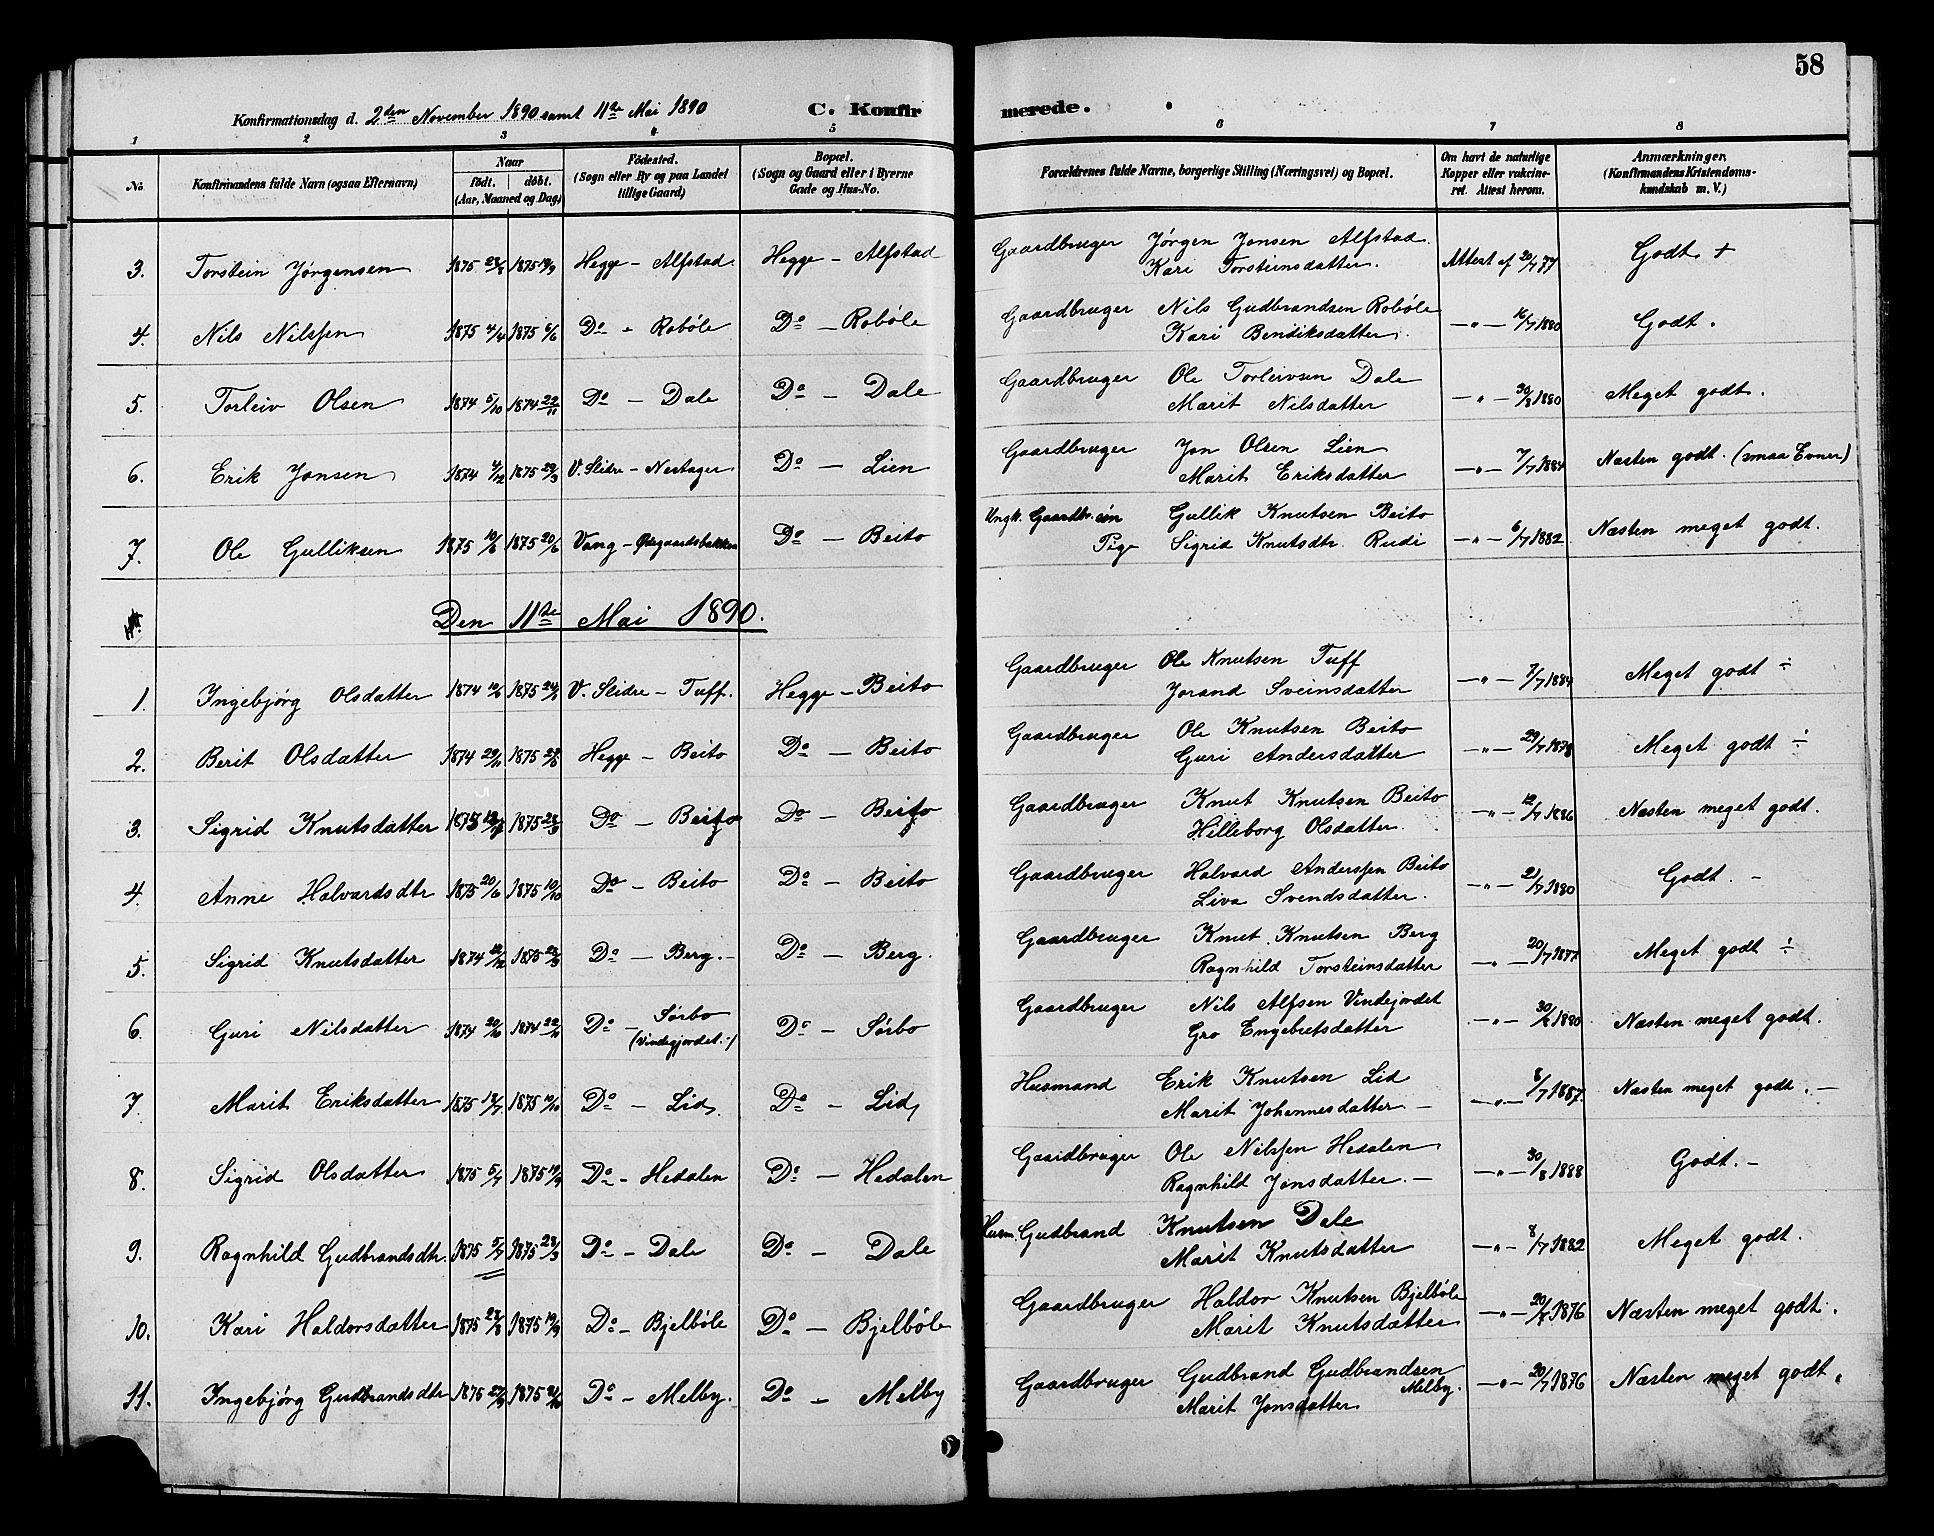 58
Konfirmationsdag d. 2den November 1890 samt 11te Mai 1890 C. Konfirmerede.
1 2 3 4 5 6 7 8
No
Konfirmandens fulde Navn (ogsaa Efternavn)
Naar
födt. döbt.
(Aar, Maaned og Dag)
Födested.
(Sogn eller By og paa Landet
tillige Gaard)
Bopæl.
(Sogn og Gaard eller i Byerne
Gade og Hus-No.
Forældrenes fulde Navne, borgerlige Stilling (Næringsvei) og Bopæl.
Om havt de naturlige
Kopper eller vakcine-
ret. Attest herom.
Anmærkninger.
(Konfirmandens Kristendoms-
kundskab m. V.)
3. Torstein Jörgensen 1875 1875 19/9 Hegge - Alfstad Hegge - Alfstad Gaardbruger Jörgen Jonsen Alfstad Attest af 20/7 77 Godt +
Kari Torsteinsdatter.
4. Nils Nilssen 1875 4/4 1875 6/6 Do - Robøle Do - Robøle Gaardbruger Nils Gudbrandsen Robøle -"- 16/7 1880 Godt.
Kari Bendiksdatter.
5. Torleiv Olsen 1874 5/10 1874 22/11 Do - Dale Do - Dale Gaardbruger Ole Torleivsen Dale -"- 30/8 1880 Meget godt.
Marit Nilsdatter
6. Erik Jonsen 1874 1875 29/3 V. Slidre - Nestager Do - Lien Gaardbruger Jon Olsen Lien -"- 7/7 1884 Næsten godt. (smaa Evner)
Marit Eriksdatter
7. Ole Gulliksen 1875 10/6 1875 20/6 Vang - Do - Beito Ungk. Gaardbr. sön Gullik Knutsen Beito -"- 6/7 1882 Næsten meget godt.
Pige Sigrid Knutsdtr. Rudi
Den 11te Mai 1890.
1. Ingebjörg Olsdatter 1874 1875 V. Slidre - Tuff. Hegge - Beito Gaardbruger Ole Knutsen Tuff -"- 7/7 1884 Meget godt ÷
Jorand Sveinsdatter
2. Berit Olsdatter 1874 29/11 1875 Hegge - Beito Do - Beito Gaardbruger Ole Knutsen Beito -"- 29/7 1878 Meget godt ÷
Guri Andersdatter
3. Sigrid Knutsdatter 1875 1875 28/3 Do - Beito Do - Beito Gaardbruger Knut Knutsen Beito -"- 12/7 1886 Næsten meget godt.
Hilleborg Olsdatter.
4. Anne Halvardsdtr 1875 20/6 1875 10/10 Do - Beito Do - Beito Gaardbruger Halvard Anderssen Beito -"- 21/7 1880 Godt. -
Liva Svendsdatter.
5. Sigrid Knutsdatter 1874 1875 Do - Berg. - Do - Berg. Gaardbruger Knut Knutsen Berg -"- 20/7 1877 Meget godt ÷
Ragnhild Torsteinsdatter
6. Guri Nilsdatter 1874 1874 22/11 Do - Sørbo Do - Sørbo Gaardbruger Nils Alfsen Vindejordet -"- 30/8 1880 Næsten meget godt.
(Vindegjordet.-) Gro Engebretsdatter
7. Marit Eriksdatter 1875 1875 10/10 Do - Lid, Do - Lid, Husmand Erik Knutsen Lid -"- 8/7 1887. Næsten meget godt. -
Marit Johannesdatter -
8. Sigrid Olsdatter 1875 5/7 1875 19/9 Do - Hedalen Do - Hedalen Gaardbruger Ole Nilssen Hedalen -"- 30/8 1888 Godt. -
Ragnhild Jonsdatter. -
9. Ragnhild Gudbrandsdtr. 1875 1875 28/3 Do - Dale Do - Dale Husm. Gudbrand Knutsen Dale -"- 8/7 1882 Meget godt.
Marit Knutsdatter
10. Kari Haldorsdatter 1875 1875 19/9 Do - Bjelbøle Do - Bjelbøle Gaardbruger Haldor Knutsen Bjelbøle -"- 20/7 1876 Næsten meget godt.
Marit Knutsdatter
11. Ingebjörg Gudbrandsdtr 1875 1875 Do - Melby. Do - Melby Gaardbruger Gudbrand Gudbrandsen -"- 20/7 1876 Næsten meget godt.
Melby.
Marit Jonsdatter